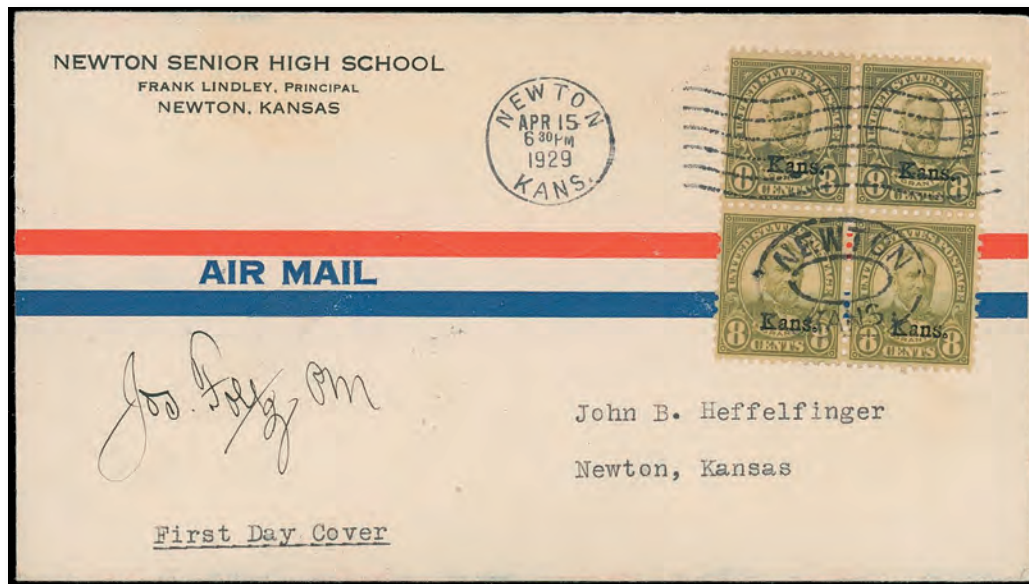 NEWTON SENIOR HIGH SCHOOL
FRANK LINDLEY, PRINCIPAL
NEWTON, KANSAS
NEWTON
APR 15
6 30 PM
1929
KANS.
UNITED STATES POSTAGE
Kans.
8 GRANT 8
CENTS
UNITED STATES POSTAGE
Kans.
8 GRANT 8
CENTS
AIR MAIL
UNITED STATES POSTAGE
Kans.
8 GRANT 8
CENTS
UNITED STATES POSTAGE
Kans.
8 GRANT 8
CENTS
NEWTON
KANS.
Jos. Foltz, PM
John B. Heffelfinger
Newton, Kansas
First Day Cover